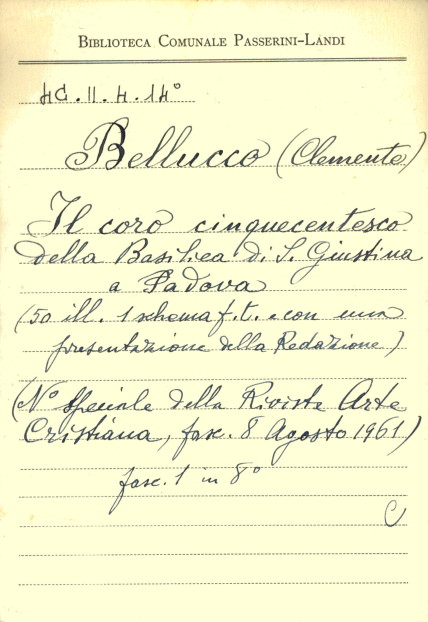 BIBLIOTECA COMUNALE PASSERINI-LANDI
4C.II.4.14°
Bellucco (Clemente)
Il coro cinquecentesco
della Basilica di S. Giustina
a Padova
(50 ill. 1 schema f.t. e con una
presentazione della Redazione)
(N° speciale della Rivista Arte
Cristiana, fasc. 8 Agosto 1961)
fasc. 1 in 8°
C